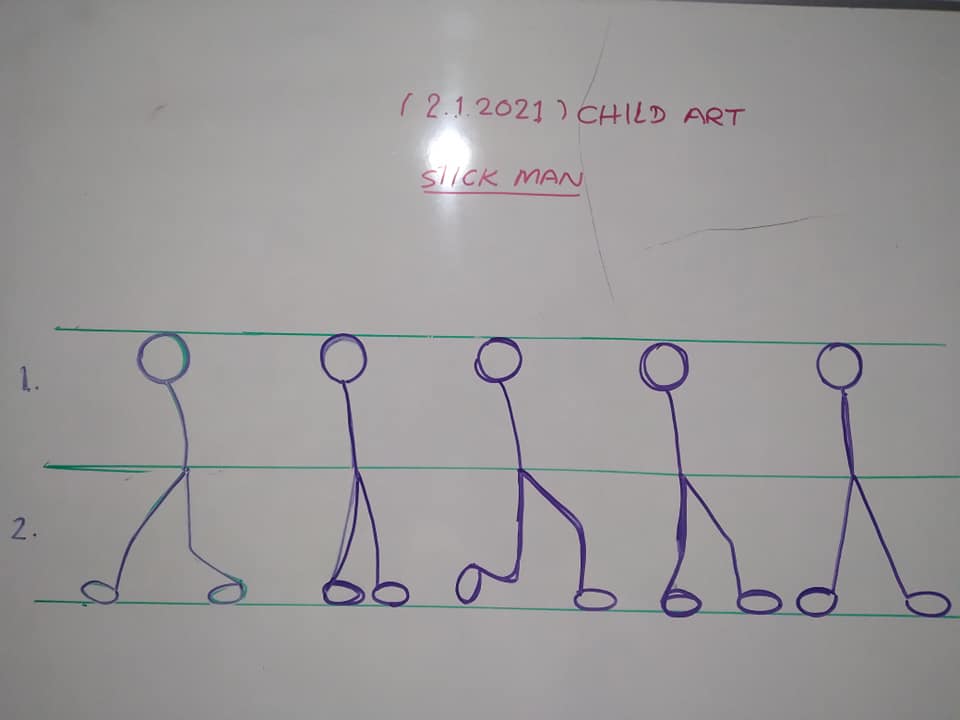 (2.1.2021) CHILD ART
STICK MAN
1.
2.